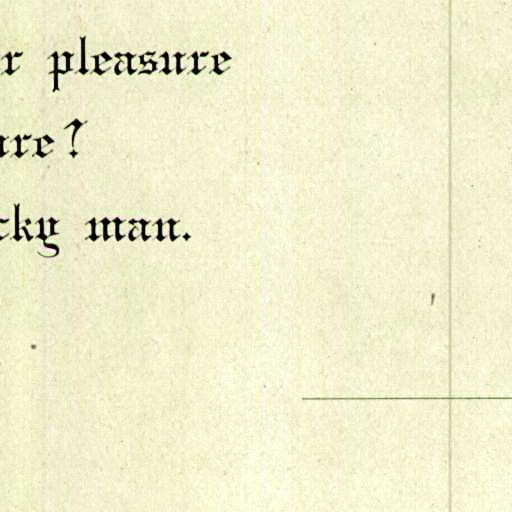 r pleasure
ure?
cky man.